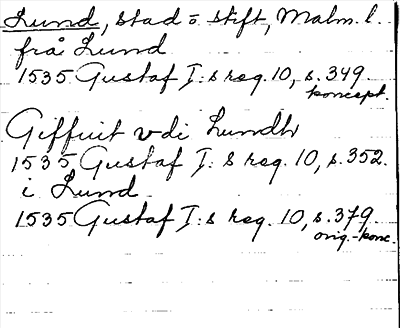 Lund, stad o stift, Malm. l.
frå Lund
1535 Gustaf I:s reg. 10, s. 349.
koncept.
Giffuit vdi Lundh
1535 Gustaf I:s reg. 10, s. 352.
i Lund
1535 Gustaf I:s reg. 10, s. 379
orig.-konc.